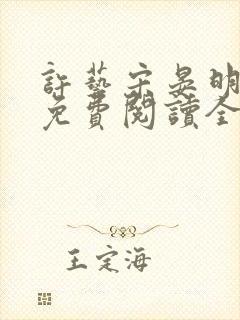 許藝宋晏明
免費閱讀全
王定海